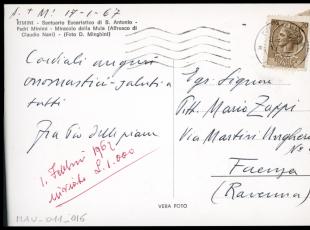 17-1-67
RIMINI - Santuario Eucaristico di S. Antonio -
Padri Minimi - Miracolo della Mula (Affresco di
Claudio Nani) - (Foto D. Minghini)
Cordiali auguri
onomastici - saluti a
tutti
Fra Pio
1. Febbr 1967
L. 1.000
MAU-011-016
Egr. Signor
Pitt. Mario Zappi
Via Martiri Ungheria
Faenza
(Ravenna)
VERA FOTO